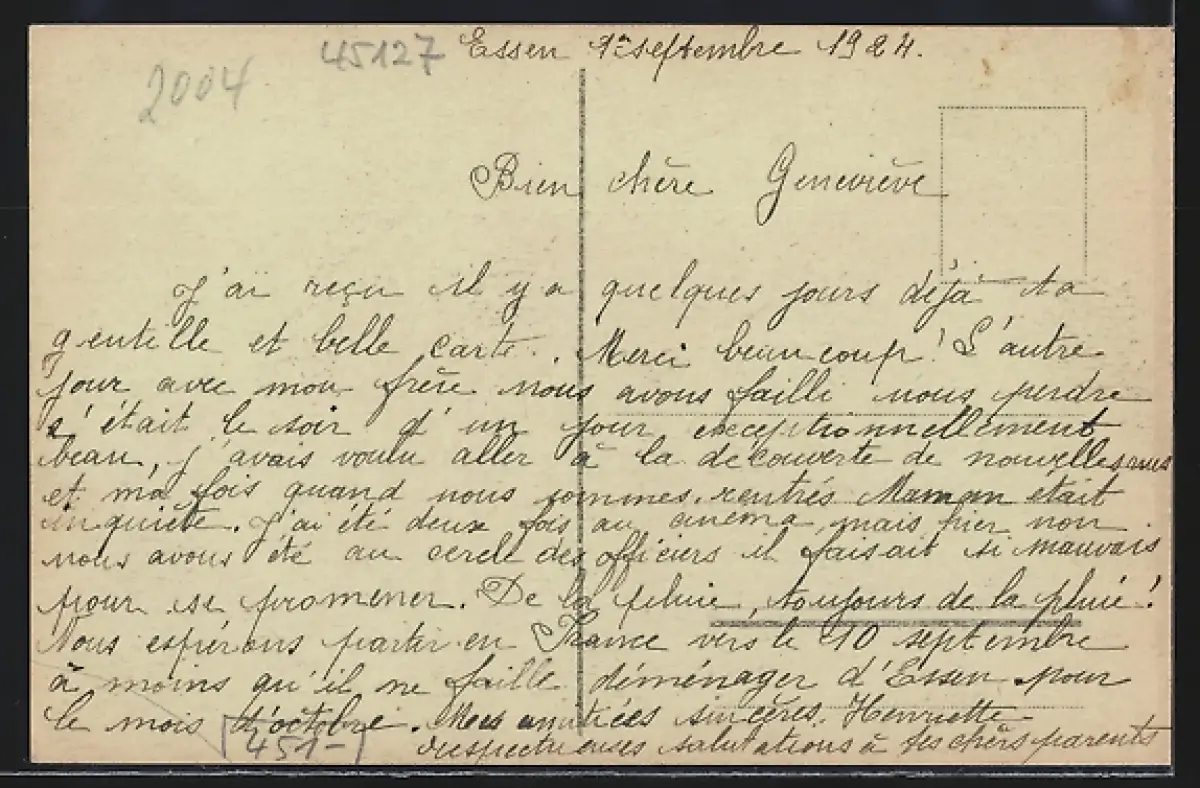 45127 Essen 1er septembre 1924.
2004
Bien chère Geneviève
J'ai reçu il y a quelques jours déjà ta
gentille et belle carte. Merci beaucoup! L'autre
jour avec mon frère nous avons failli nous perdre
s'était le soir d'un jour exceptionnellement
beau, j'avais voulu aller à la découverte de nouvelles rues
et ma fois quand nous sommes rentrés Maman était
inquiète. J'ai été deux fois au cinéma, mais hier non
nous avons été au cercle des officiers il faisait si mauvais
pour se promener. De la pluie, toujours de la pluie!
Nous espérons partir en France vers le 10 septembre
à moins qu'il ne faille déménager d'Essen pour
le mois d'octobre. Mes amitiées sincères. Henriette
[451-] respectueuses salutations à tes chers parents